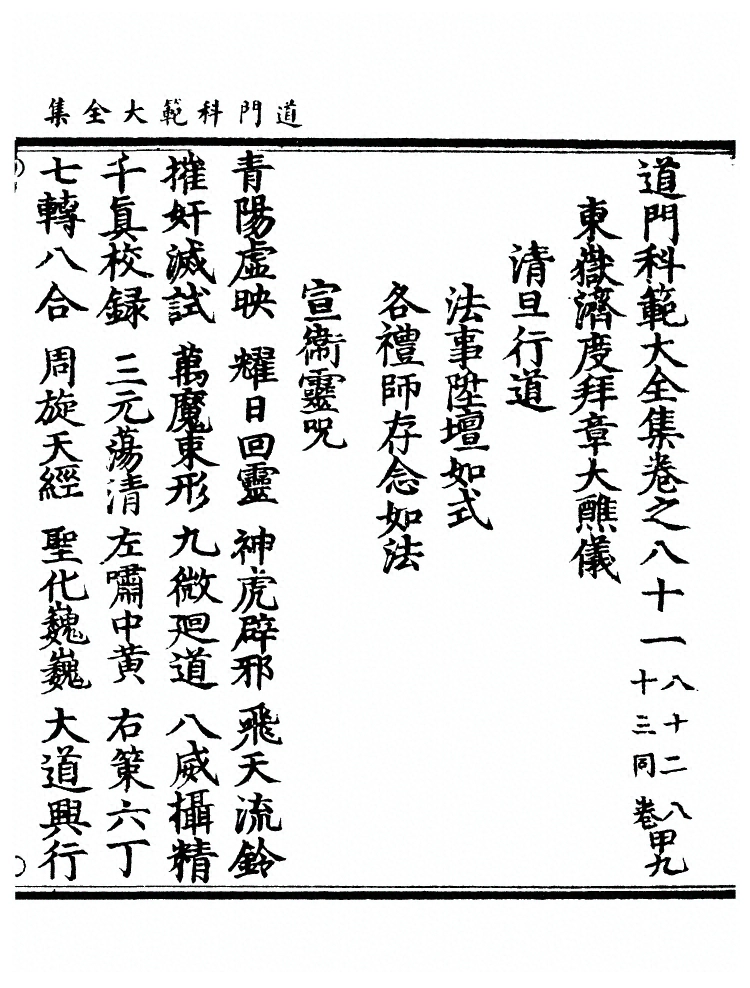 道門科範大全集
道門科範大全集卷之八十一 八十二八十三同卷 甲九
東嶽濟度拜章大醮儀
清旦行道
法事陞壇如式
各禮師存念如法
宣衞靈呪
青陽虛映 耀日回靈 神虎辟邪 飛天流鈴
摧奸滅試 萬魔束形 九微廻道 八威攝精
千眞校録 三元蕩清 左嘯中黃 右策六丁
七轉八合 周旋天經 聖化巍巍 大道興行